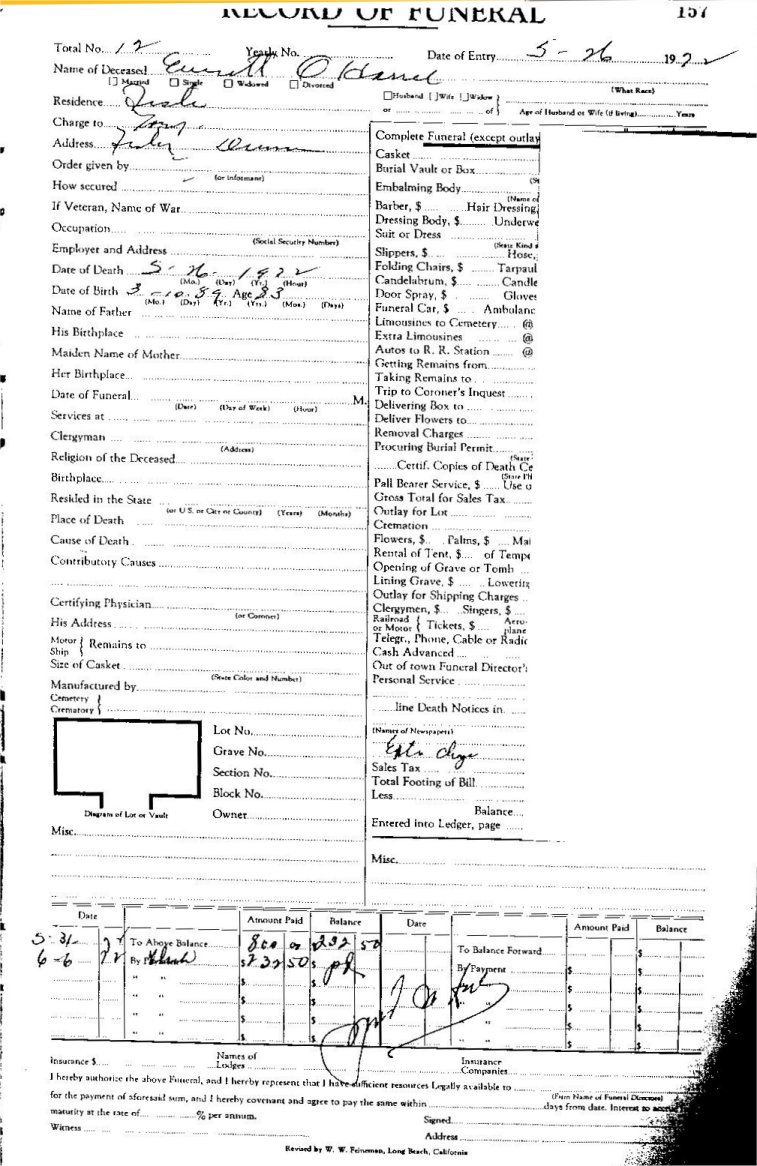 RECORD OF FUNERAL 157
Total No. 12 Yearly No. Date of Entry 5 - 26 1972
Name of Deceased
[ ] Married [ ] Single [ ] Widowed [ ] Divorced
[ ] Husband [ ] Wife [ ] Widow } (What Race)
or of } Age of Husband or Wife (if living) Years
Residence
Charge to
Address
Order given by
(or informant)
How secured
If Veteran, Name of War
Occupation
(Social Security Number)
Employer and Address
Date of Death 5 - 26 - 1972
(Mo.) (Day) (Yr.) (Hour)
Date of Birth 3 - 10 - 89 Age 83
(Mo.) (Day) (Yr.) (Yrs.) (Mos.) (Days)
Name of Father
His Birthplace
Maiden Name of Mother
Her Birthplace
Date of Funeral M.
(Date) (Day of Week) (Hour)
Services at
Clergyman
(Address)
Religion of the Deceased
Birthplace
Resided in the State
(or U.S. or City or County) (Years) (Months)
Place of Death
Cause of Death
Contributory Causes
Certifying Physician
(or Coroner)
His Address
Motor } Remains to
Ship
Size of Casket
(State Color and Number)
Manufactured by
Cemetery }
Crematory }
Lot No.
Grave No.
Section No.
Block No.
Owner
Diagram of Lot or Vault
Misc.
Complete Funeral (except outlay
Casket
Burial Vault or Box
(St
Embalming Body
(Name o
Barber, $ Hair Dressing,
Dressing Body, $ Underwe
Suit or Dress
(State Kind a
Slippers, $ Hose,
Folding Chairs, $ Tarpaul
Candelabrum, $ Candle
Door Spray, $ Gloves
Funeral Car, $ Ambulanc
Limousines to Cemetery @
Extra Limousines @
Autos to R. R. Station @
Getting Remains from
Taking Remains to
Trip to Coroner's Inquest
Delivering Box to
Deliver Flowers to
Removal Charges
Procuring Burial Permit
(State
Certif. Copies of Death Ce
(State Wh
Pall Bearer Service, $ Use o
Gross Total for Sales Tax
Outlay for Lot
Cremation
Flowers, $ Palms, $ Mat
Rental of Tent, $ of Tempo
Opening of Grave or Tomb
Lining Grave, $ Lowering
Outlay for Shipping Charges
Clergymen, $ Singers, $
Railroad or Motor { Tickets, $ Aero-plane
Telegr., Phone, Cable or Radio
Cash Advanced
Out of town Funeral Director's
Personal Service
line Death Notices in
(Names of Newspapers)
Sales Tax
Total Footing of Bill
Less
Balance
Entered into Ledger, page
Misc.
Date Amount Paid Balance Date Amount Paid Balance
5-31- 72 To Above Balance 800 00 232 50 To Balance Forward $
6-6 72 By $232 50 $ pd By Payment $ $
" " $ $ " " $ $
" " $ $ " " $ $
" " $ $ " " $ $
" " $ $ " " $ $
Insurance $ Names of Lodges Insurance Companies
I hereby authorize the above Funeral, and I hereby represent that I have sufficient resources Legally available to
(Firm Name of Funeral Directors)
for the payment of aforesaid sum, and I hereby covenant and agree to pay the same within days from date. Interest to accrue
maturity at the rate of % per annum. Signed
Witness Address
Revised by W. W. Feineman, Long Beach, California